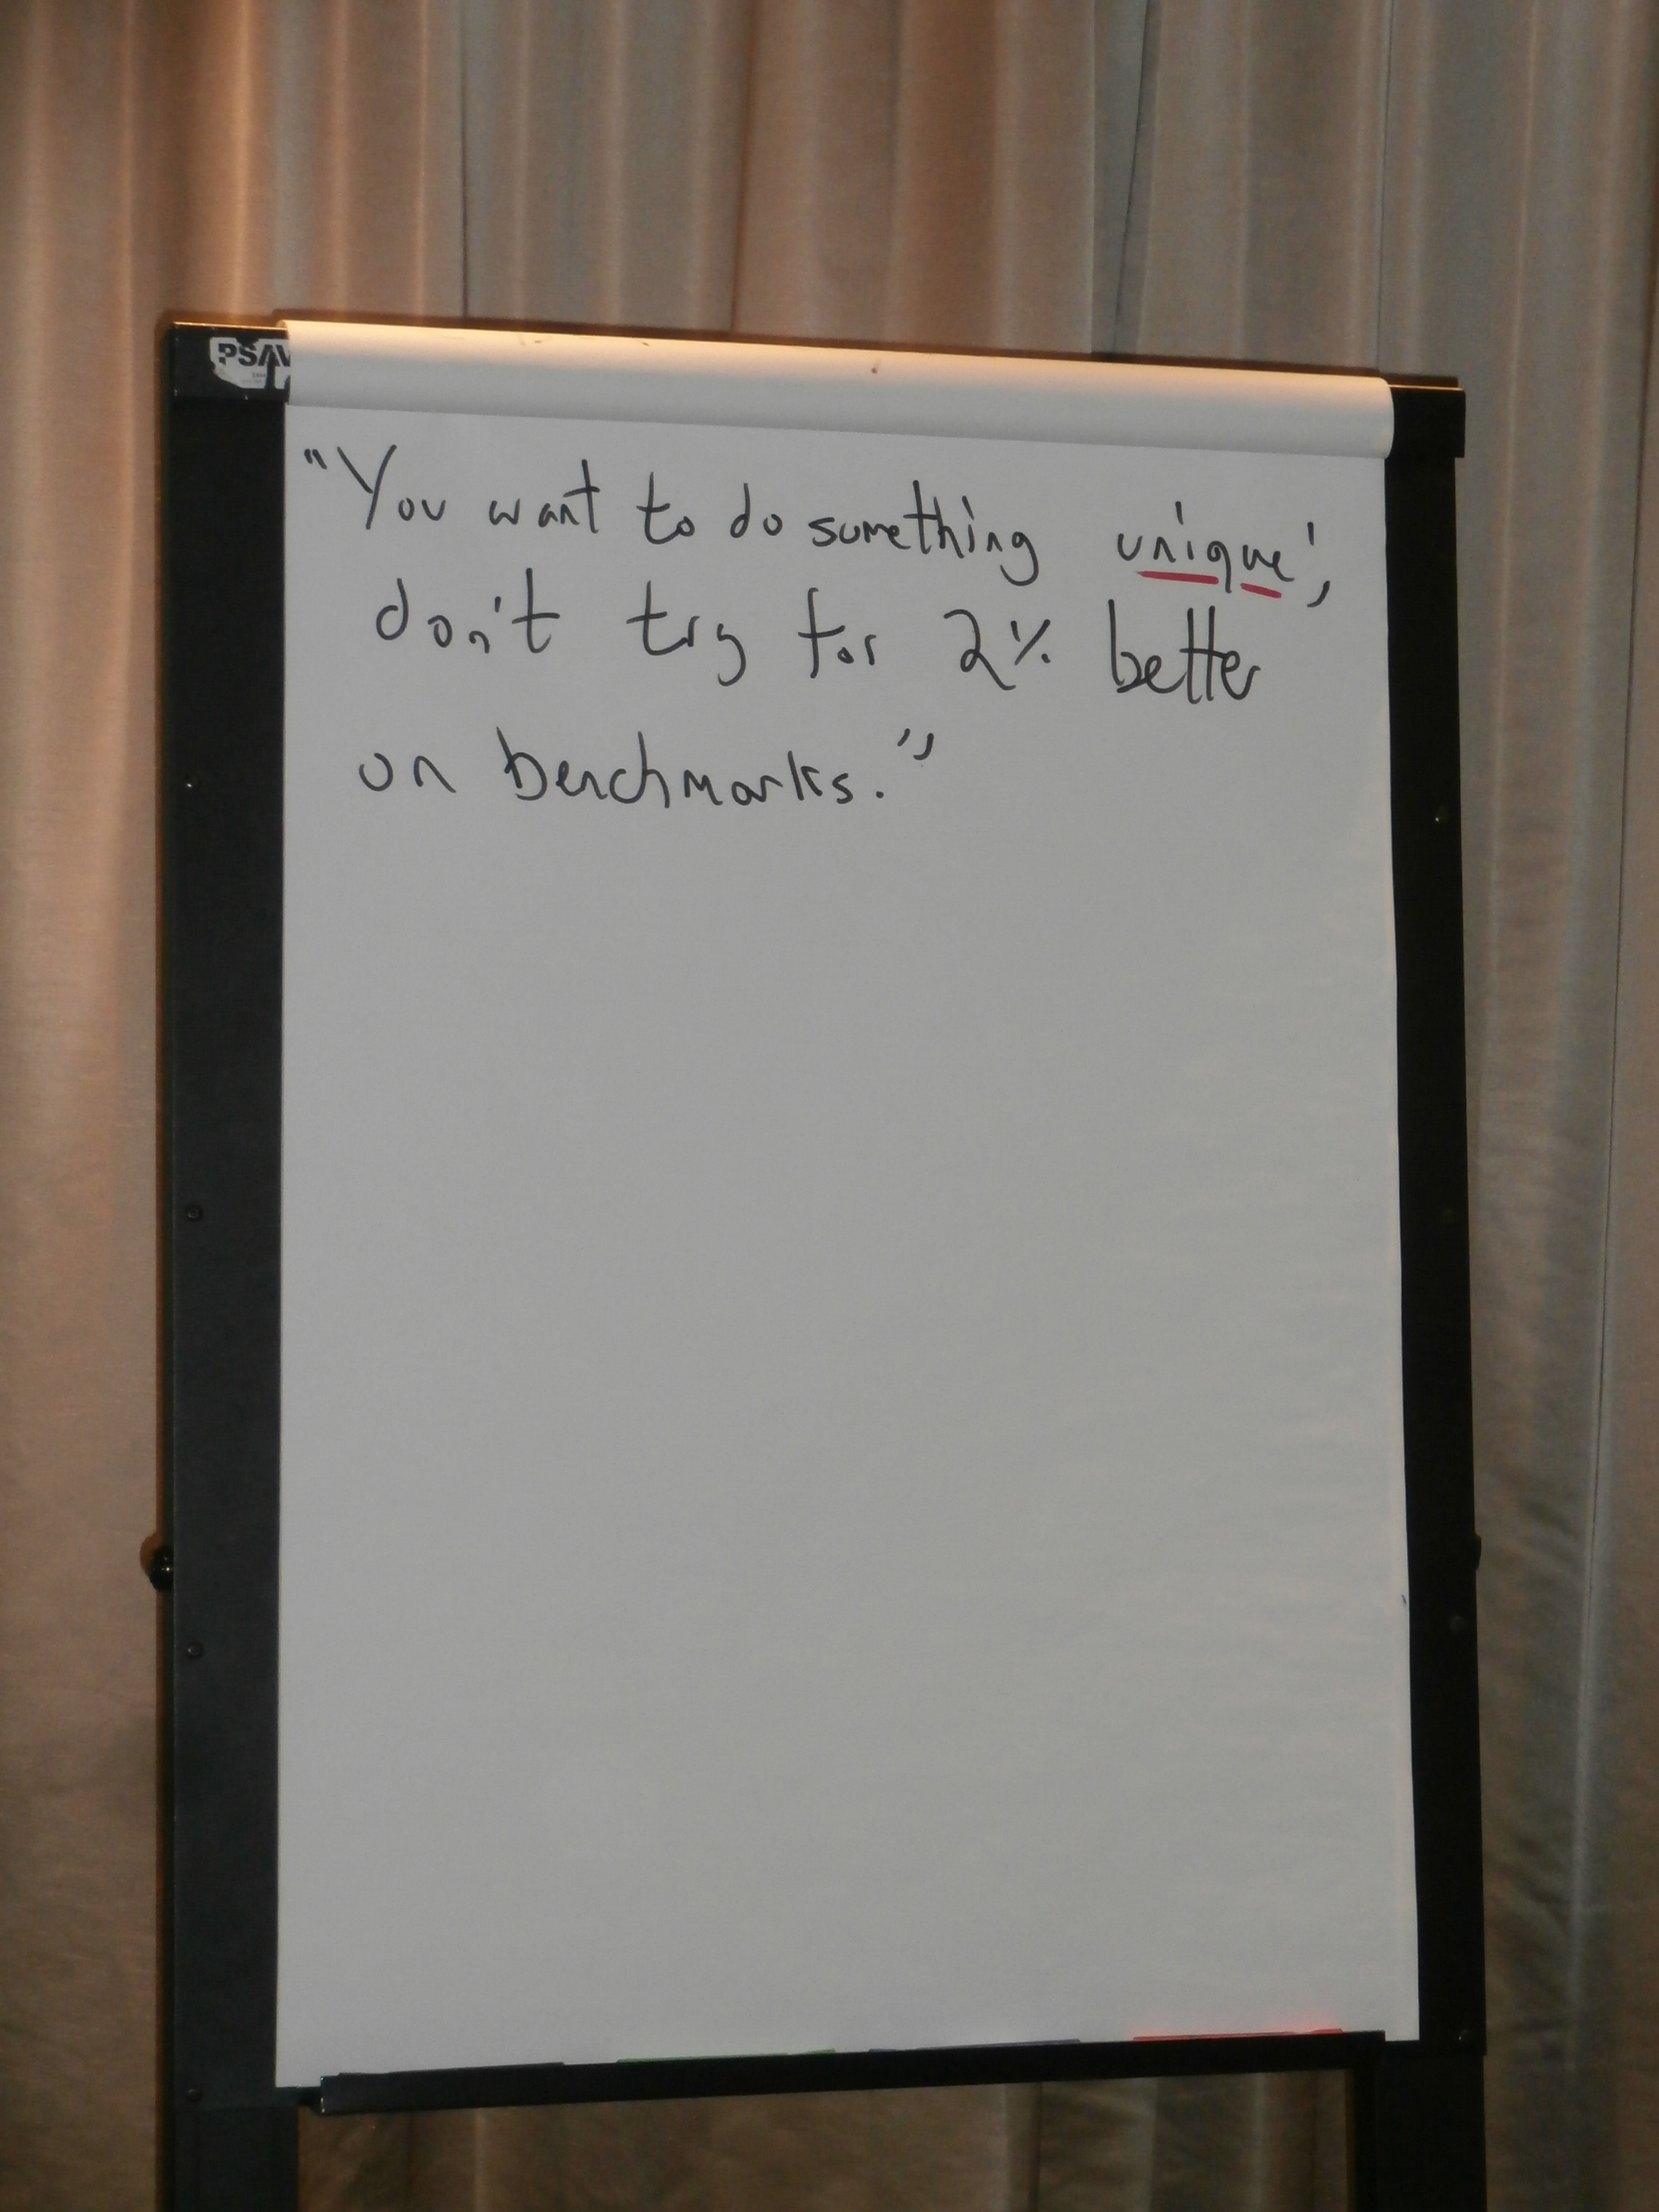 PSAV
"You want to do something unique',
don't try for 2% better
on benchmarks."